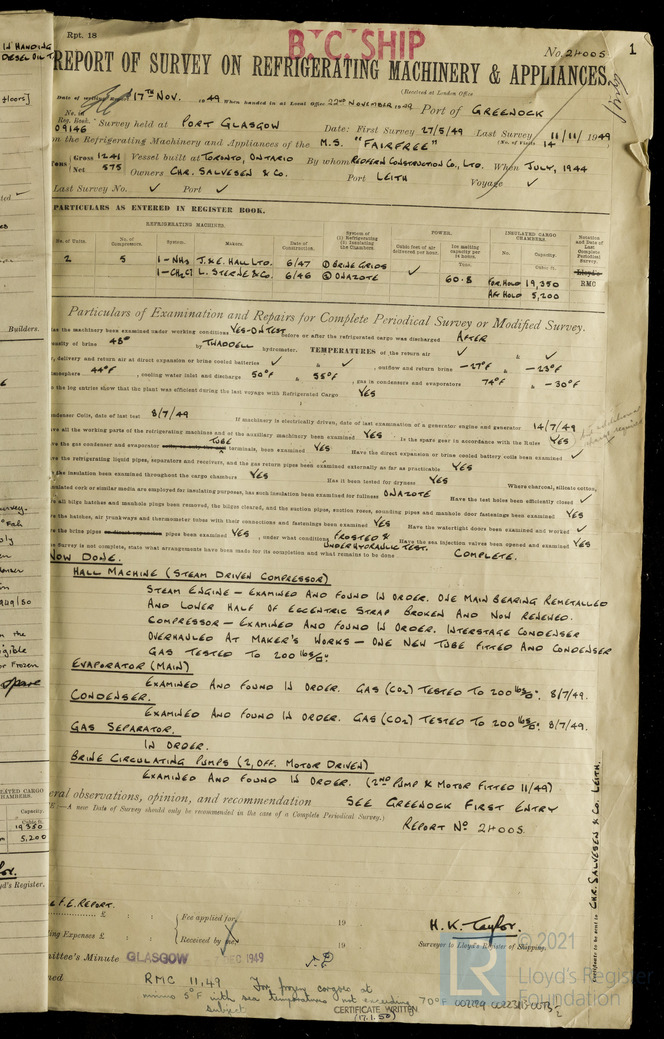 Rpt. 18
B.C. SHIP
No. 24005
1
REPORT OF SURVEY ON REFRIGERATING MACHINERY & APPLIANCES.
(Received at London Office
Date of writing Report 17TH NOV. 1949 When handed in at Local Office 22ND NOVEMBER 1949 Port of GREENOCK
No. in Reg. Book. 09146 Survey held at PORT GLASGOW Date: First Survey 27/5/49 Last Survey 11/11/1949
(No. of Visits 14
on the Refrigerating Machinery and Appliances of the M.S. "FAIRFREE"
Tons Gross 1241 Net 575 Vessel built at TORONTO, ONTARIO By whom REDFERN CONSTRUCTION CO., LTD. When JULY, 1944
Owners CHR. SALVESEN & CO. Port LEITH Voyage ✓
Last Survey No. ✓ Port ✓
PARTICULARS AS ENTERED IN REGISTER BOOK.
REFRIGERATING MACHINES.
No. of Units. No. of Compressors. System. Makers. Date of Construction.
System of (1) Refrigerating (2) Insulating the Chambers.
POWER.
Cubic feet of air delivered per hour. Ice melting capacity per 24 hours. Tons.
INSULATED CARGO CHAMBERS.
No. Capacity. Cubic ft.
Notation and Date of Last Complete Periodical Survey.
2 5 1-NH3 J.&E. HALL LTD. 6/47 ① BRINE GRIDS ✓ 60.8 FOR. HOLD 19,350 Lloyd's RMC
1-CH3Cl L. STERNE & CO. 6/46 ② ONAZOTE AFT HOLD 5,200
Particulars of Examination and Repairs for Complete Periodical Survey or Modified Survey.
Has the machinery been examined under working conditions YES-ON TEST before or after the refrigerated cargo was discharged AFTER
Density of brine 48° by TWADDELL hydrometer. TEMPERATURES of the return air ✓ & ✓
, delivery and return air at direct expansion or brine cooled batteries ✓ & ✓ , outflow and return brine -27°F & -23°F
atmosphere 44°F , cooling water inlet and discharge 50°F & 55°F , gas in condensers and evaporators 74°F & -30°F
the log entries show that the plant was efficient during the last voyage with Refrigerated Cargo YES
Condenser Coils, date of last test 8/7/49 If machinery is electrically driven, date of last examination of a generator engine and generator 14/7/49
Have all the working parts of the refrigerating machines and of the auxiliary machinery been examined YES Is the spare gear in accordance with the Rules YES
Have the gas condenser and evaporator TUBE terminals, been examined YES Have the direct expansion or brine cooled battery coils been examined ✓
Have the refrigerating liquid pipes, separators and receivers, and the gas return pipes been examined externally as far as practicable YES
Has the insulation been examined throughout the cargo chambers YES Has it been tested for dryness YES Where charcoal, silicate cotton,
granulated cork or similar materials are employed for insulating purposes, has such insulation been examined for fullness ONAZOTE Have the test holes been efficiently closed ✓
Have all bilge hatches and manhole plugs been removed, the bilges cleared, and the suction pipes, suction roses, sounding pipes and manhole door fastenings been examined YES
Have the hatches, air trunkways and thermometer tubes with their connections and fastenings been examined YES Have the watertight doors been examined and worked ✓
Have the brine pipes pipes been examined YES , under what conditions FROSTED & UNDER HYDRAULIC TEST. Have the sea injection valves been opened and examined YES
the Survey is not complete, state what arrangements have been made for its completion and what remains to be done COMPLETE.
NOW DONE.
HALL MACHINE (STEAM DRIVEN COMPRESSOR)
STEAM ENGINE - EXAMINED AND FOUND IN ORDER. ONE MAIN BEARING REMETALLED
AND LOWER HALF OF ECCENTRIC STRAP BROKEN AND NOW RENEWED.
COMPRESSOR - EXAMINED AND FOUND IN ORDER. INTERSTAGE CONDENSER
OVERHAULED AT MAKER'S WORKS - ONE NEW TUBE FITTED AND CONDENSER
GAS TESTED TO 200 lbs/□".
EVAPORATOR (MAIN)
EXAMINED AND FOUND IN ORDER. GAS (CO2) TESTED TO 200 lbs/□". 8/7/49.
CONDENSER.
EXAMINED AND FOUND IN ORDER. GAS (CO2) TESTED TO 200 lbs/□". 8/7/49.
GAS SEPARATOR.
IN ORDER.
BRINE CIRCULATING PUMPS (2, OFF. MOTOR DRIVEN)
EXAMINED AND FOUND IN ORDER. (2ND PUMP & MOTOR FITTED 11/49)
General observations, opinion, and recommendation SEE GREENOCK FIRST ENTRY
—A new Date of Survey should only be recommended in the case of a Complete Periodical Survey.)
REPORT No 24005.
F.E. REPORT.
£ : : Fee applied for, 19
Travelling Expenses £ : : Received by me, 19
H. K. Taylor.
Surveyor to Lloyd's Register of Shipping.
Committee's Minute GLASGOW DEC 1949
RMC 11,49 For frozen cargoes at
minus 5°F with sea temperatures not exceeding 70°F
subject
CERTIFICATE WRITTEN
(17.1.50)
Certificate to be sent to CHR. SALVESEN & CO. LEITH.
© 2021
LR
Lloyd's Register
Foundation